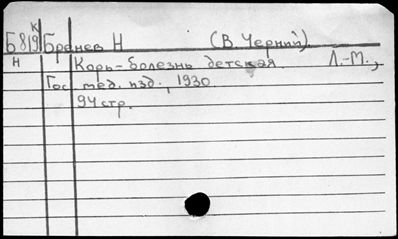 К
Б819 Бренев Н (В. Черний)
Н Корь-болезнь детская. Л.-М.,
Гос. мед. изд., 1930.
94 стр.